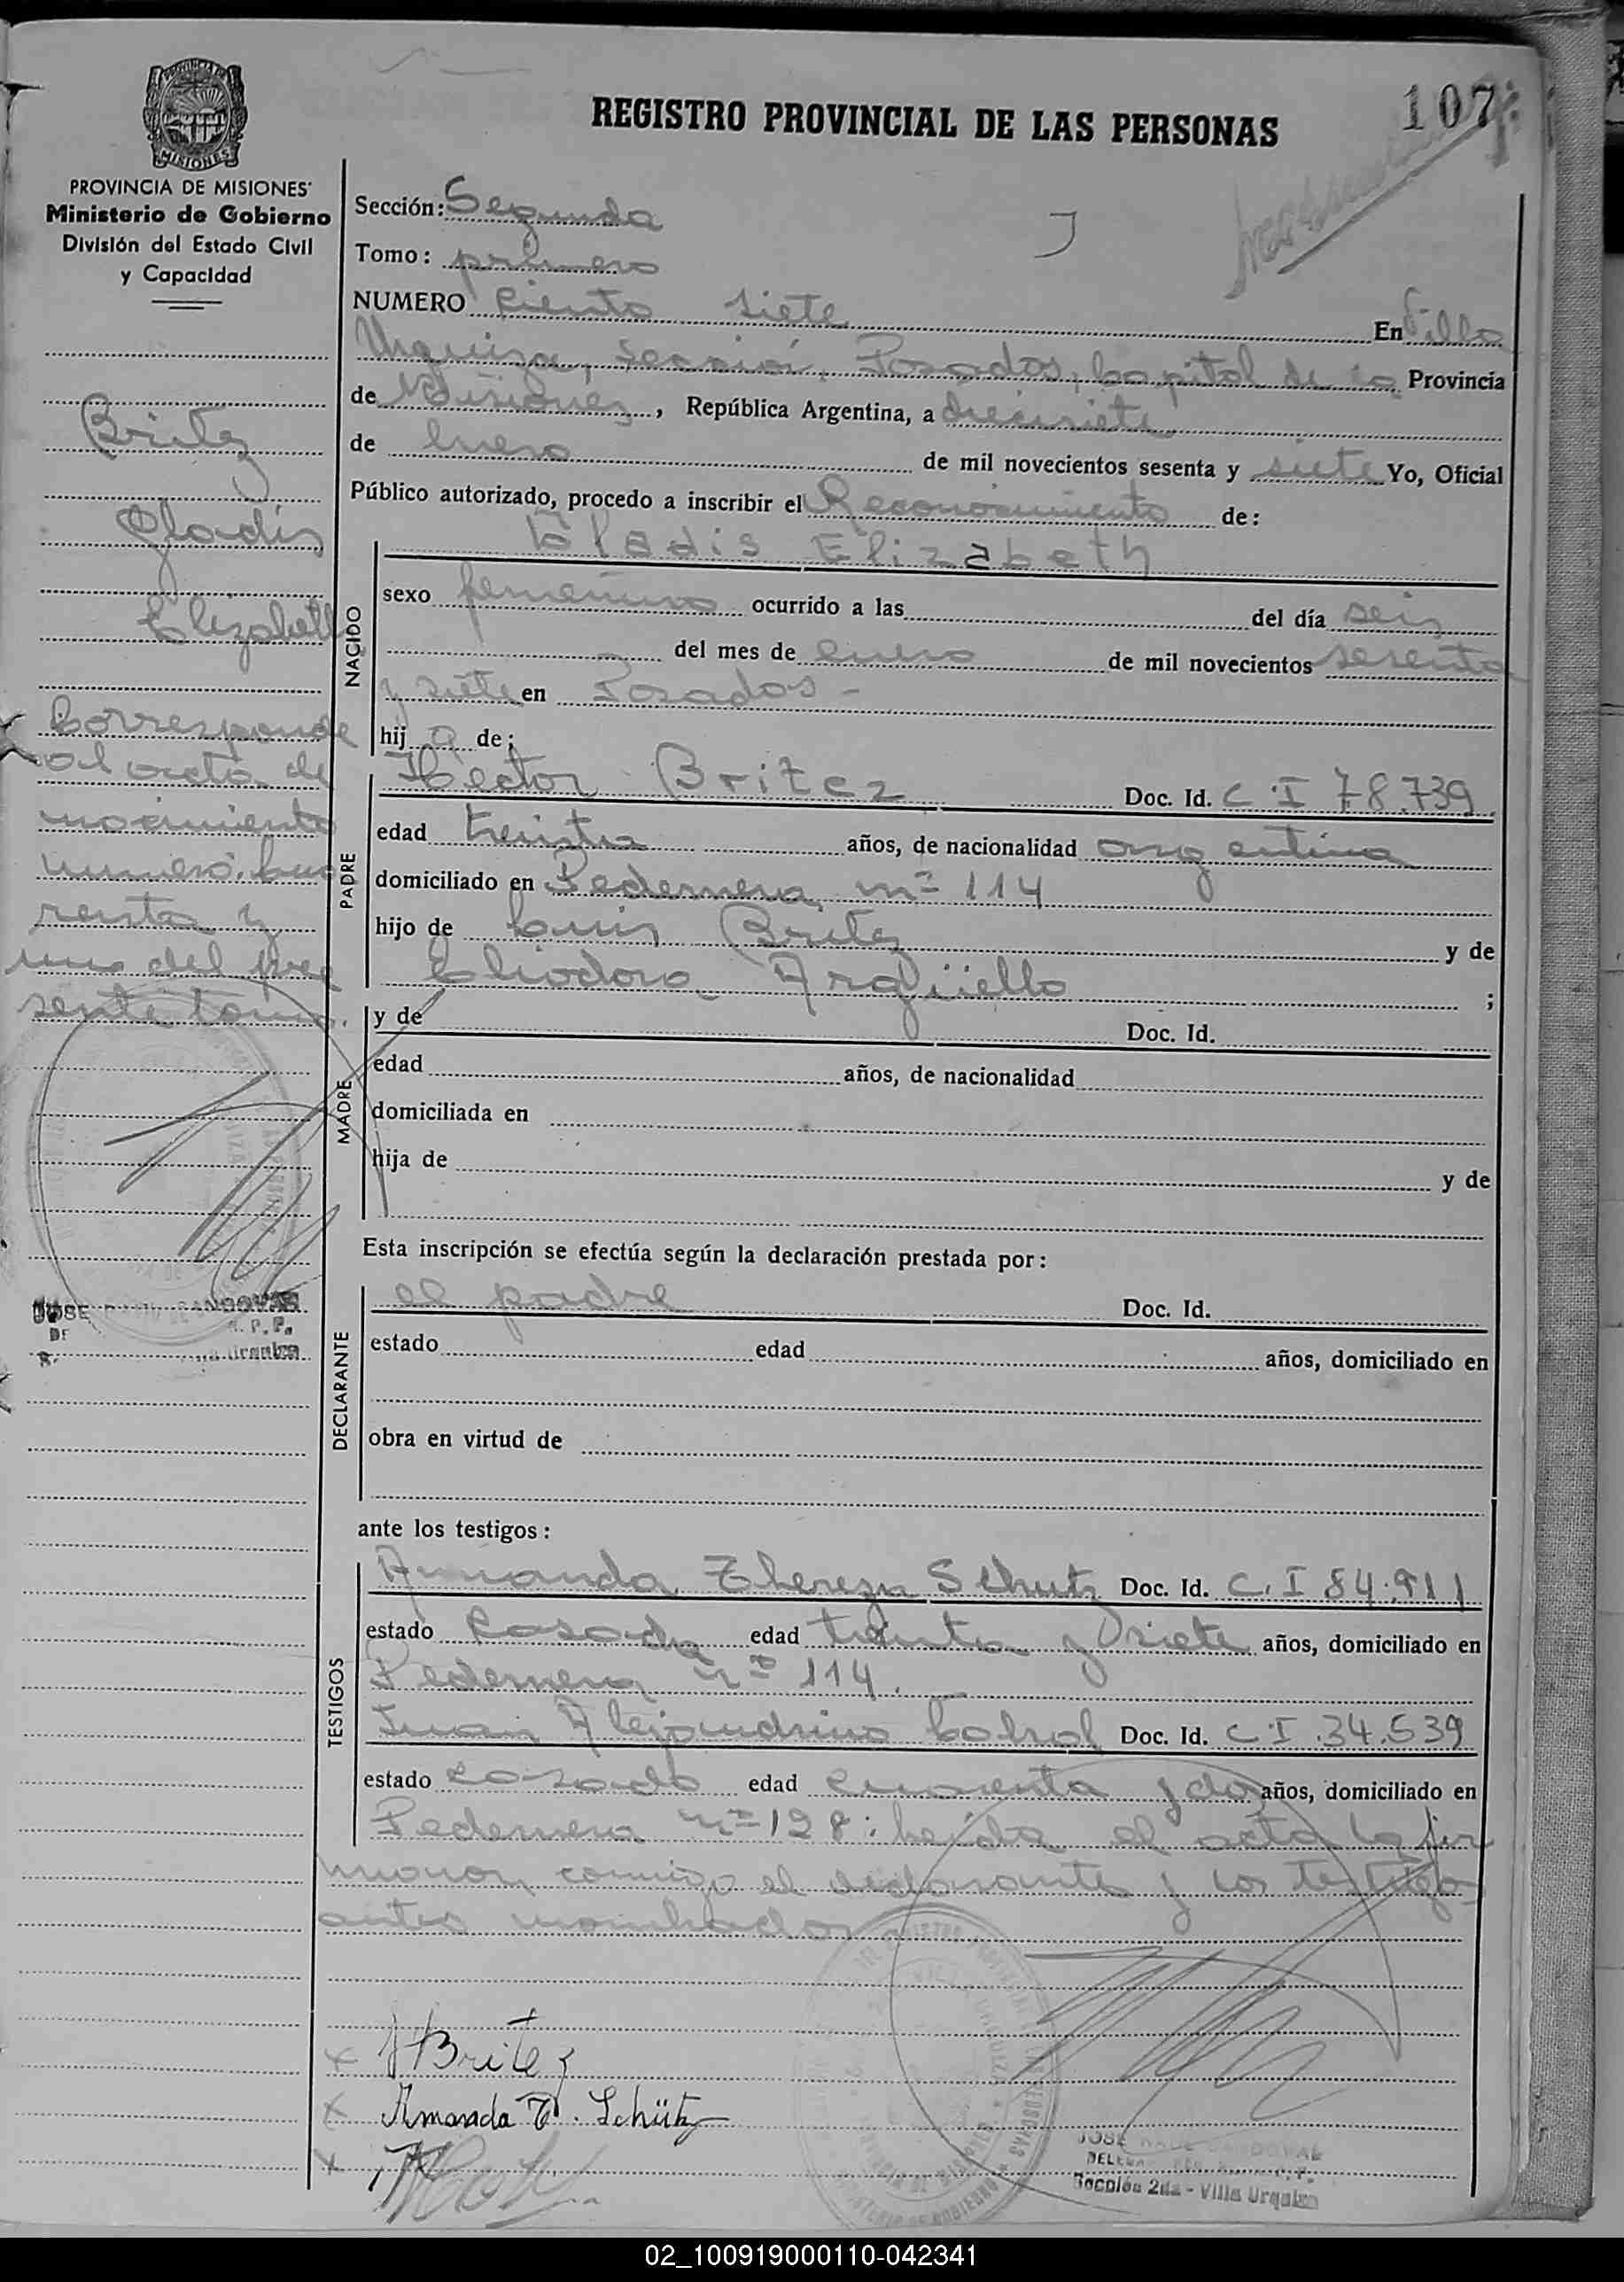 REGISTRO PROVINCIAL DE LAS PERSONAS
107
PROVINCIA DE MISIONES
Ministerio de Gobierno
División del Estado Civil
y Capacidad
Sección: Segunda
Tomo: primero
NUMERO Ciento siete
En Villa
Urquiza, Sección, Posadas, Capital de la Provincia
de Misiones, República Argentina, a diecisiete
de Enero de mil novecientos sesenta y siete Yo, Oficial
Público autorizado, procedo a inscribir el Reconocimiento de:
Britez
Gladis
Elizabeth
Corresponde
al acta de
nacimiento
numero cua
renta y
uno del pre
sente tomo.
NACIDO
Gladis Elizabeth
sexo femenino ocurrido a las del día seis
del mes de enero de mil novecientos sesenta
y siete en Posadas -
hij a de;
PADRE
Hector Britez Doc. Id. C.I 78.739
edad treinta años, de nacionalidad argentina
domiciliado en Pedernera nº 114
hijo de Luis Britez y de
Eliodora Argüello ;
MADRE
y de Doc. Id.
edad años, de nacionalidad
domiciliada en
hija de y de
Esta inscripción se efectúa según la declaración prestada por:
DECLARANTE
el padre Doc. Id.
estado edad años, domiciliado en
obra en virtud de
ante los testigos:
TESTIGOS
Armanda Thereza Schutz Doc. Id. C.I 84.911
estado Casada edad treinta y siete años, domiciliado en
Pedernera nº 114.
Juan Alejandrino Cabral Doc. Id. C.I.34.539
estado casado edad cuarenta y dos años, domiciliado en
Pedernera nº 128: leida el acta la fir
maron conmigo el declarante y los testigos
antes nombrados
HBritez
Amanda T. Schütz
JOSE RAUL SANDOVAL
Sección 2da - Villa Urquiza
02_100919000110-042341